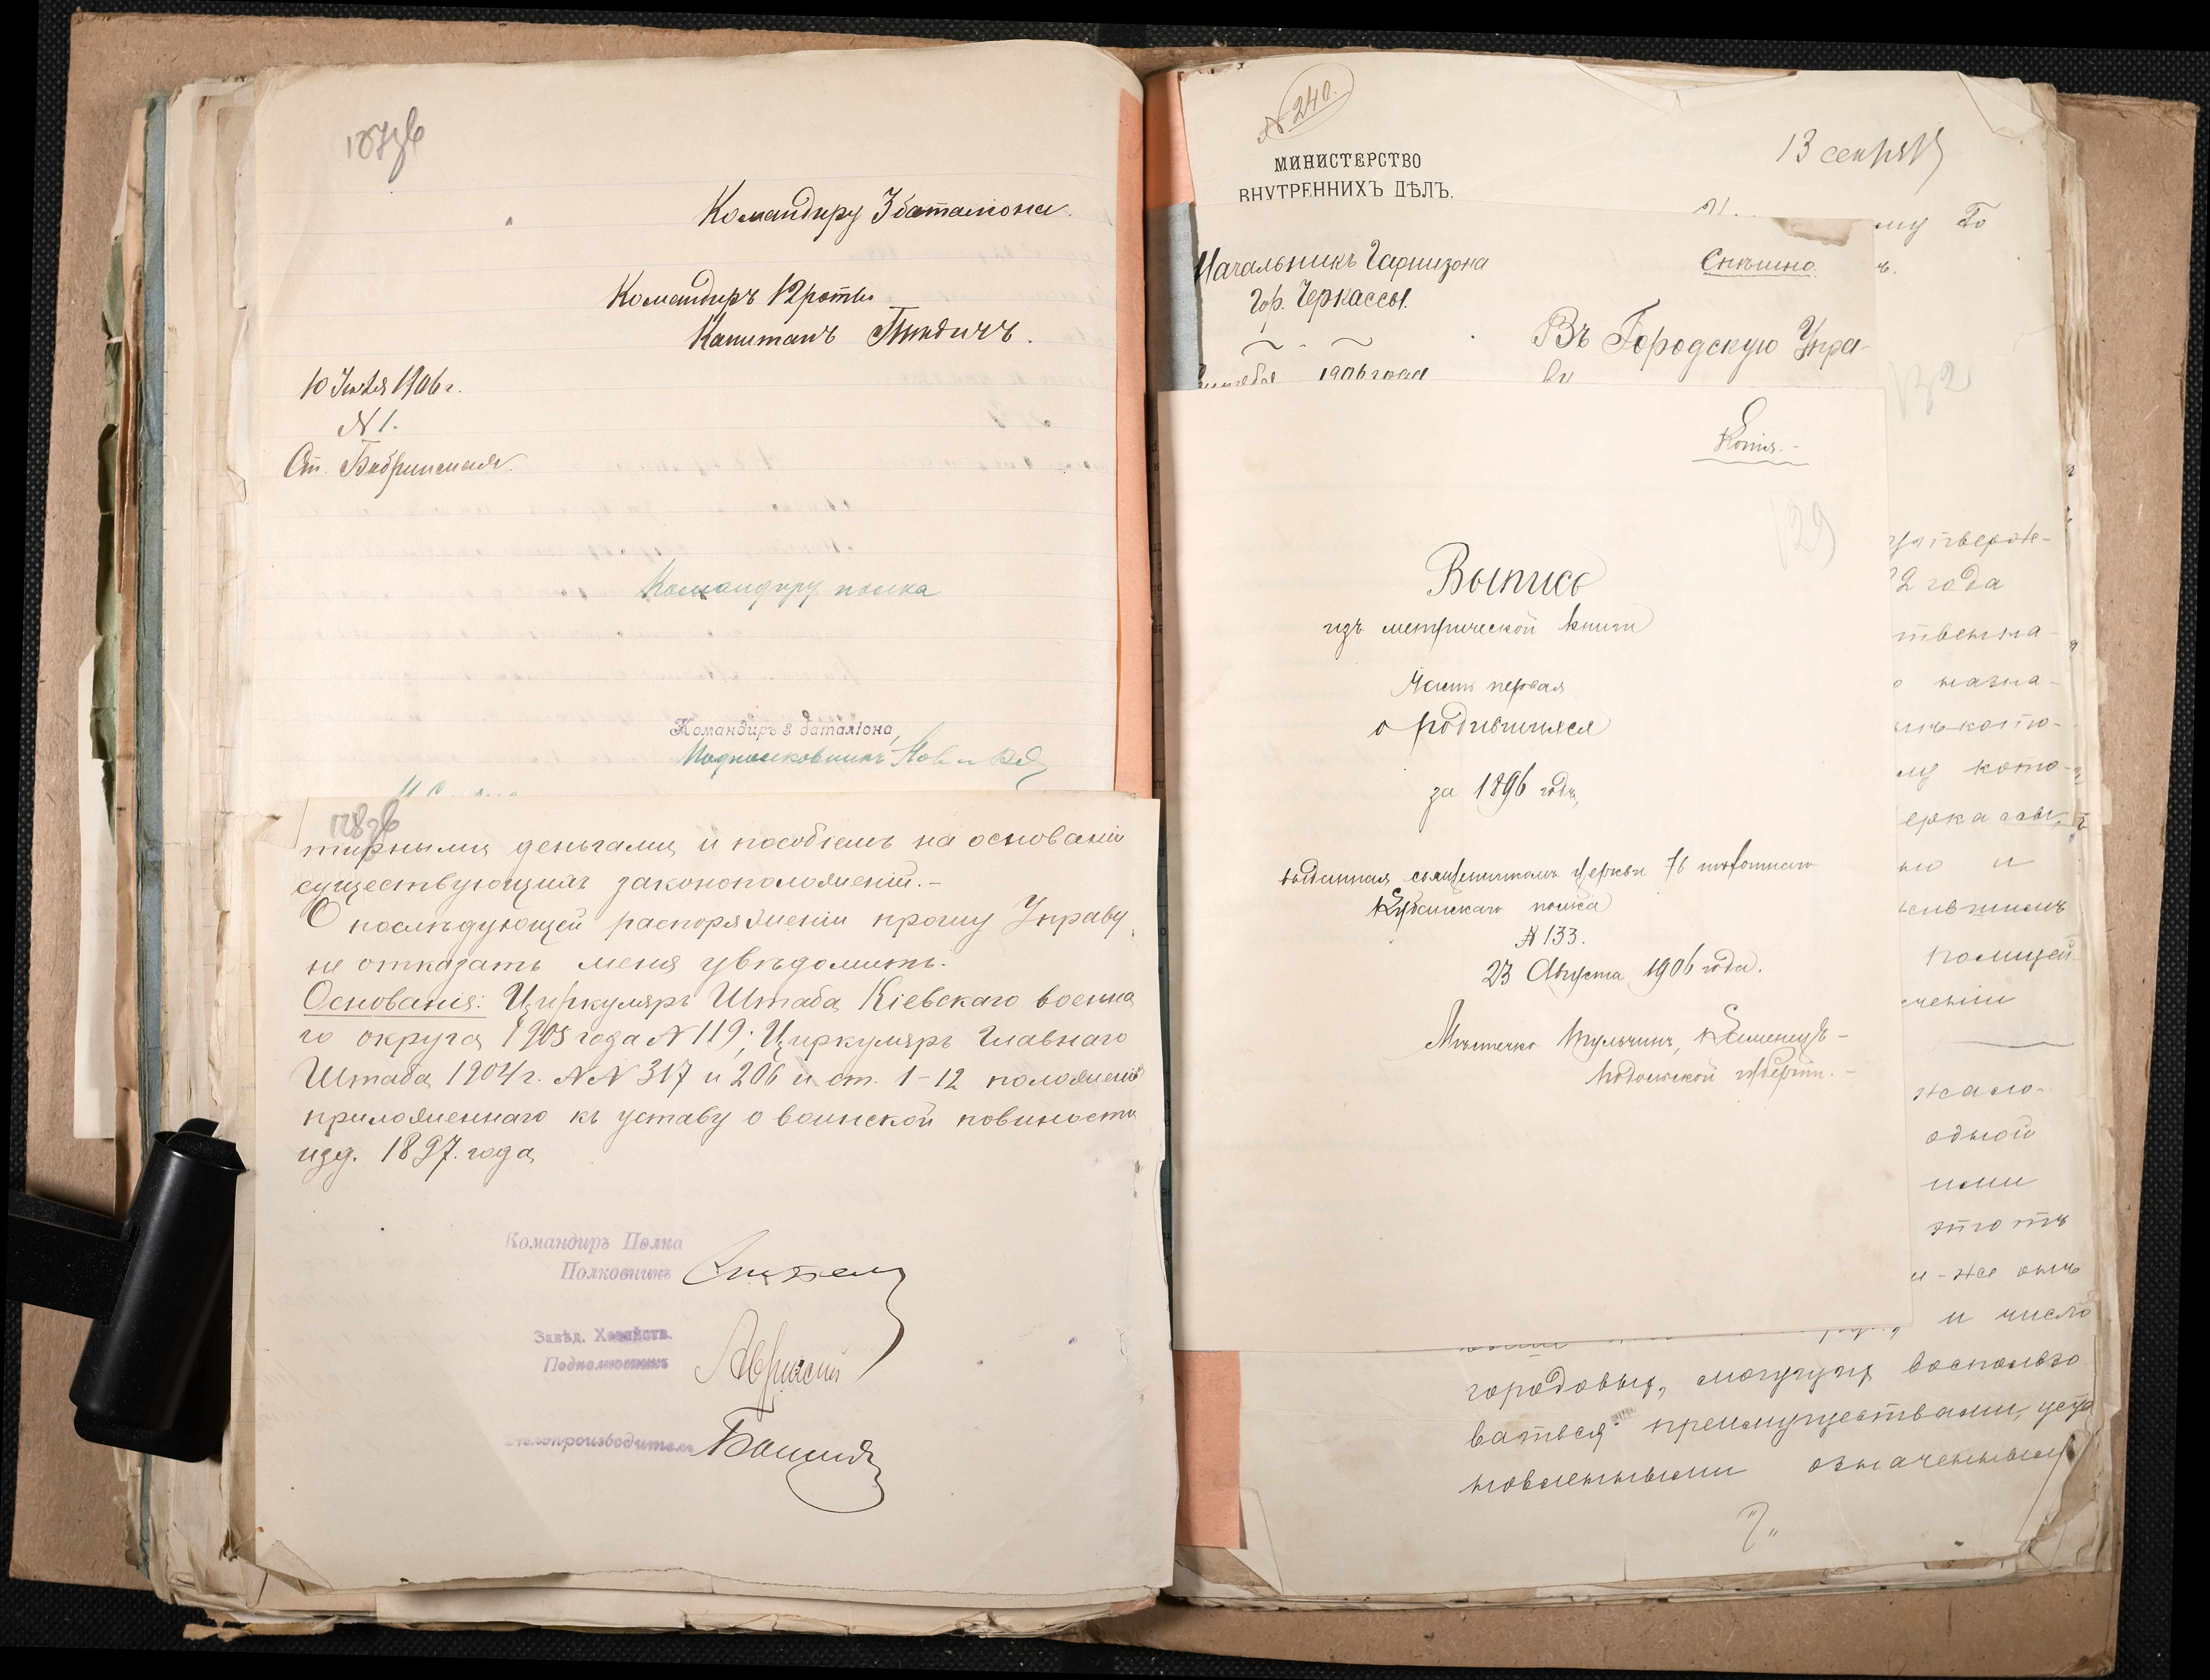 Командиру 3 баталіона.
Командиръ 12 роты
Капитанъ
10 Іюля 1906 г.
N 1.
Ст. Бобринская.
Командиру полка
Командиръ 3 баталіона,
Подполковникъ
тирными деньгами и пособіемъ на основаніи
существующихъ законоположеній.-
О послѣдующей распоряженіи прошу Управу,
не отказать меня увѣдомить.
Основанія: Циркуляръ Штаба Кіевскаго военна
го округа 1905 года N 119; Циркуляръ Главнаго
Штаба 1904 г. NN 317 и 206 и ст. 1-12 положенія
приложеннаго къ уставу о воинской повиности
изд. 1897. года
Командиръ Полка
Полковникъ
Завѣд. Хозяйств.
Подполковникъ
Дѣлопроизводитель
N 240.
13 сентября
МИНИСТЕРСТВО
ВНУТРЕННИХЪ ДѢЛЪ.
му Го
Начальникъ Гарнизона
Спѣшно.
гор. Черкассы.
Въ Городскую Упра-
ву
1906 года
132
Копія.-
129
Выпись
изъ метрической книги
Часть первая
о родившихся
за 1896 годъ,
выданная священникомъ церкви 76 пѣхотнаго
Кубанскаго полка
N 133.
23 Августа 1906 года.
Мѣстечко Тульчинъ, Каменецъ-
Подольской губерніи.-
утверж-
2 года
твенна-
о назна-
му кото-
но и
полицей
женіи
жало-
одной
ими
этотъ
и-же онъ
и число
городовых, могущих воспользо
ваться преимуществами, уста
новленными означенными